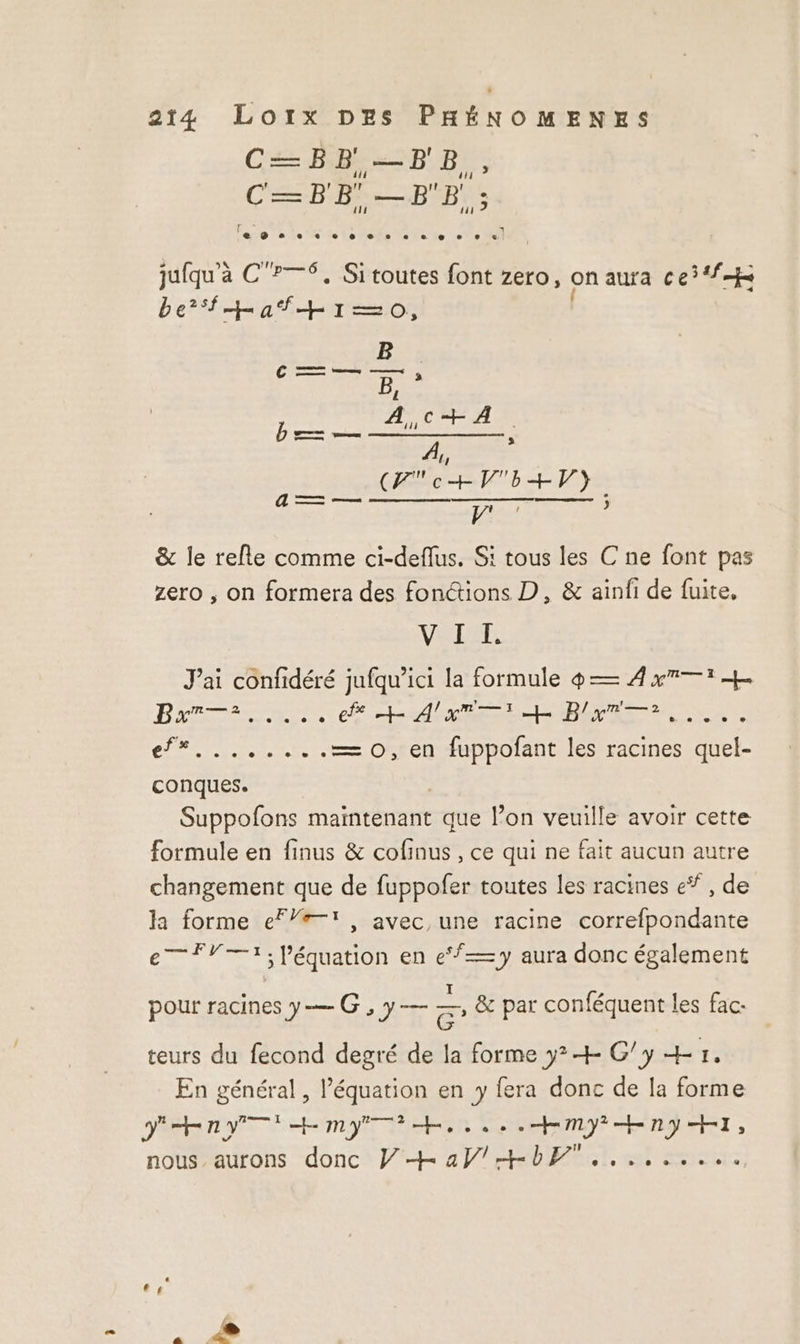 214 LOIX DES PHÉNOMENES
C = B B'‚‚‚ — B' B‚‚‚ ,
C' = B' B''‚‚‚ — B'' B'‚‚‚ ;
. . . . . . . . . . . . . . .
juſqu'à C''ᵖ⁻⁶. Si toutes ſont zero, on aura ce³ˢᶠ +
be²ˢᶠ + aˢᶠ + 1 = 0,
c = — B / B‚ ,
b = — A‚‚‚ c + A / A‚‚ ,
a = — (V''' c + V'' b + V) / V' ;
& le reſte comme ci-deſſus. Si tous les C ne ſont pas
zero, on formera des fonctions D, & ainſi de ſuite.
VII.
J'ai conſidéré juſqu'ici la formule φ = A xᵐ⁻¹ +
B xᵐ⁻² ...... eᶠˣ + A' xᵐ'⁻¹ + B' xᵐ'⁻² .....
eᶠ'ˣ ......... = 0, en ſuppoſant les racines quel-
conques.
Suppoſons maintenant que l'on veuille avoir cette
formule en ſinus & coſinus, ce qui ne fait aucun autre
changement que de ſuppoſer toutes les racines eˢᶠ, de
la forme e^{F√—1}, avec une racine correſpondante
e^{—F√—1} ; l'équation en eˢᶠ = y aura donc également
pour racines y — G, y — 1/G, & par conſéquent les fac-
teurs du ſecond degré de la forme y² + G' y + 1.
En général, l'équation en y ſera donc de la forme
yⁿ + n yⁿ⁻¹ + m yⁿ⁻² + ..... + m y² + n y + 1,
nous aurons donc V + a V' + b V'' .........